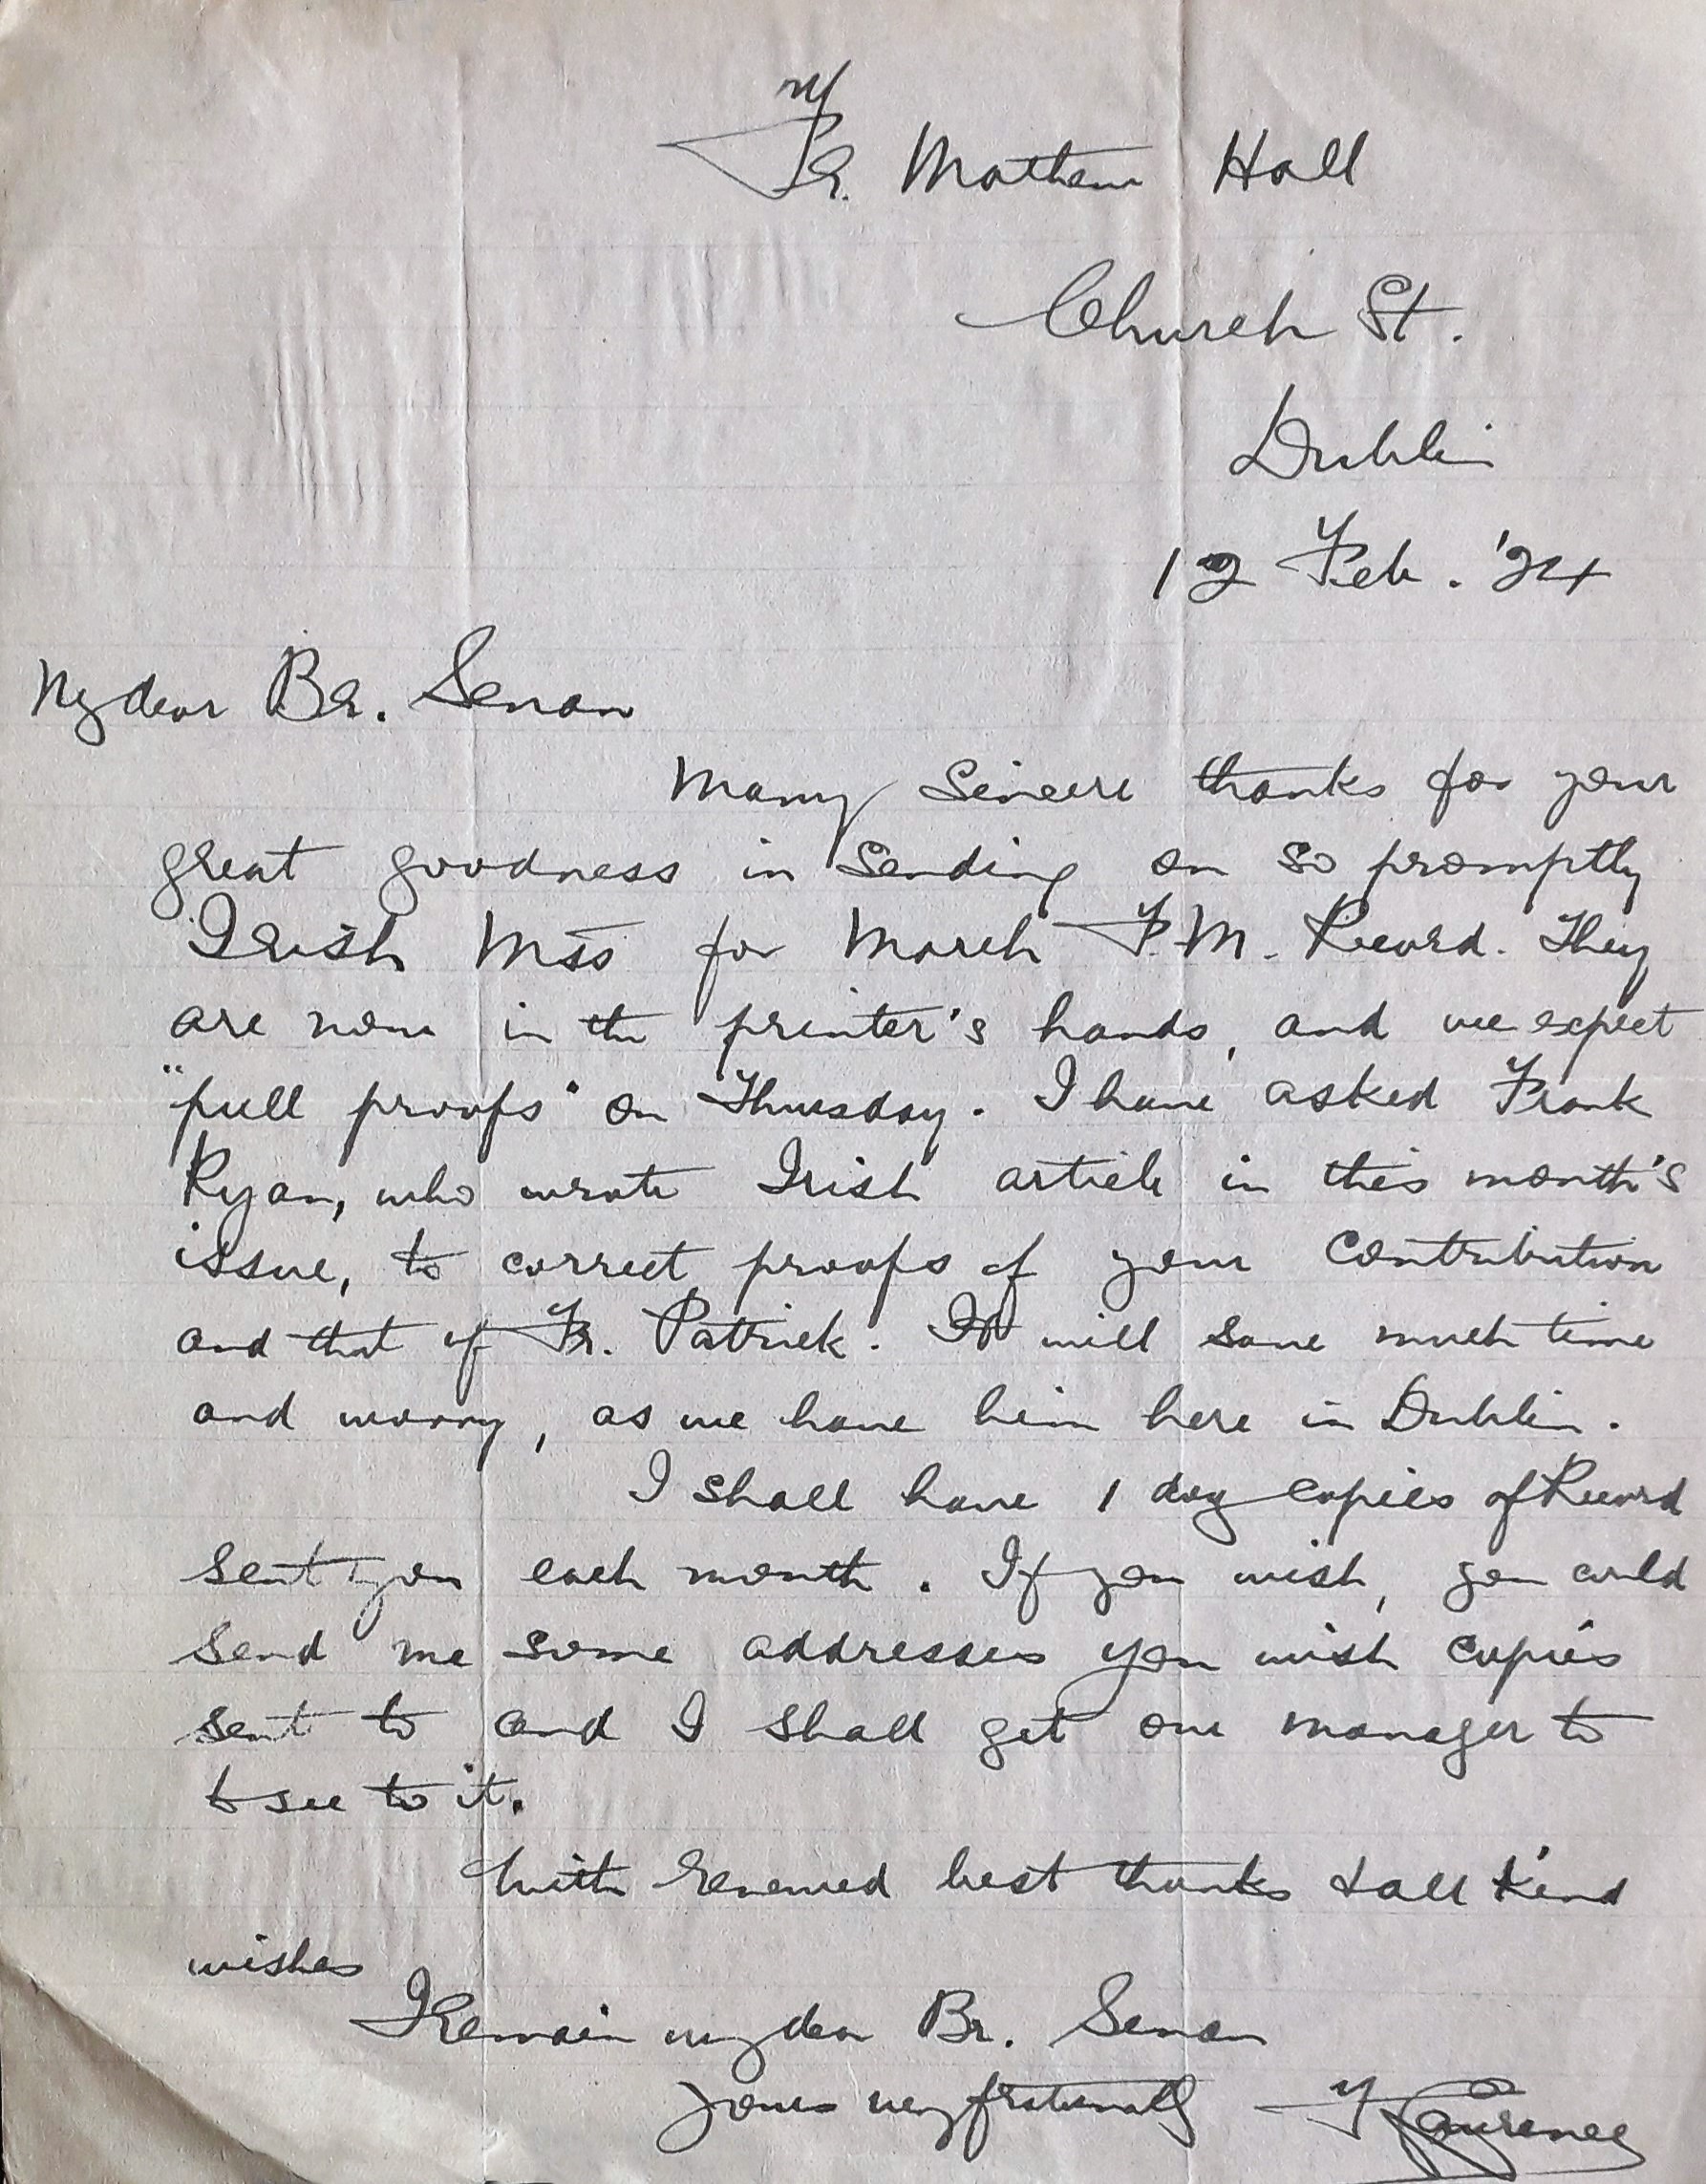 Fr. Mathew Hall
Church St.
Dublin
12 Feb. '24
My dear Br. Senan
Many sincere thanks for your
great goodness in sending on so promptly
Irish Mss for March F.M. Record. They
are now in the printer's hands, and we expect
"pull proofs" on Thursday. I have asked Frank
Ryan, who wrote Irish article in this month's
issue, to correct proofs of your contribution
and that of Fr. Patrick. It will save much time
and worry, as we have him here in Dublin.
I shall have 1 doz copies of Record
sent you each month. If you wish, you could
send me some addresses you wish copies
sent to and I shall get our manager to
to see to it.
With renewed best thanks & all kind
wishes
I remain my dear Br. Senan
Yours very fraternally Fr Laurence